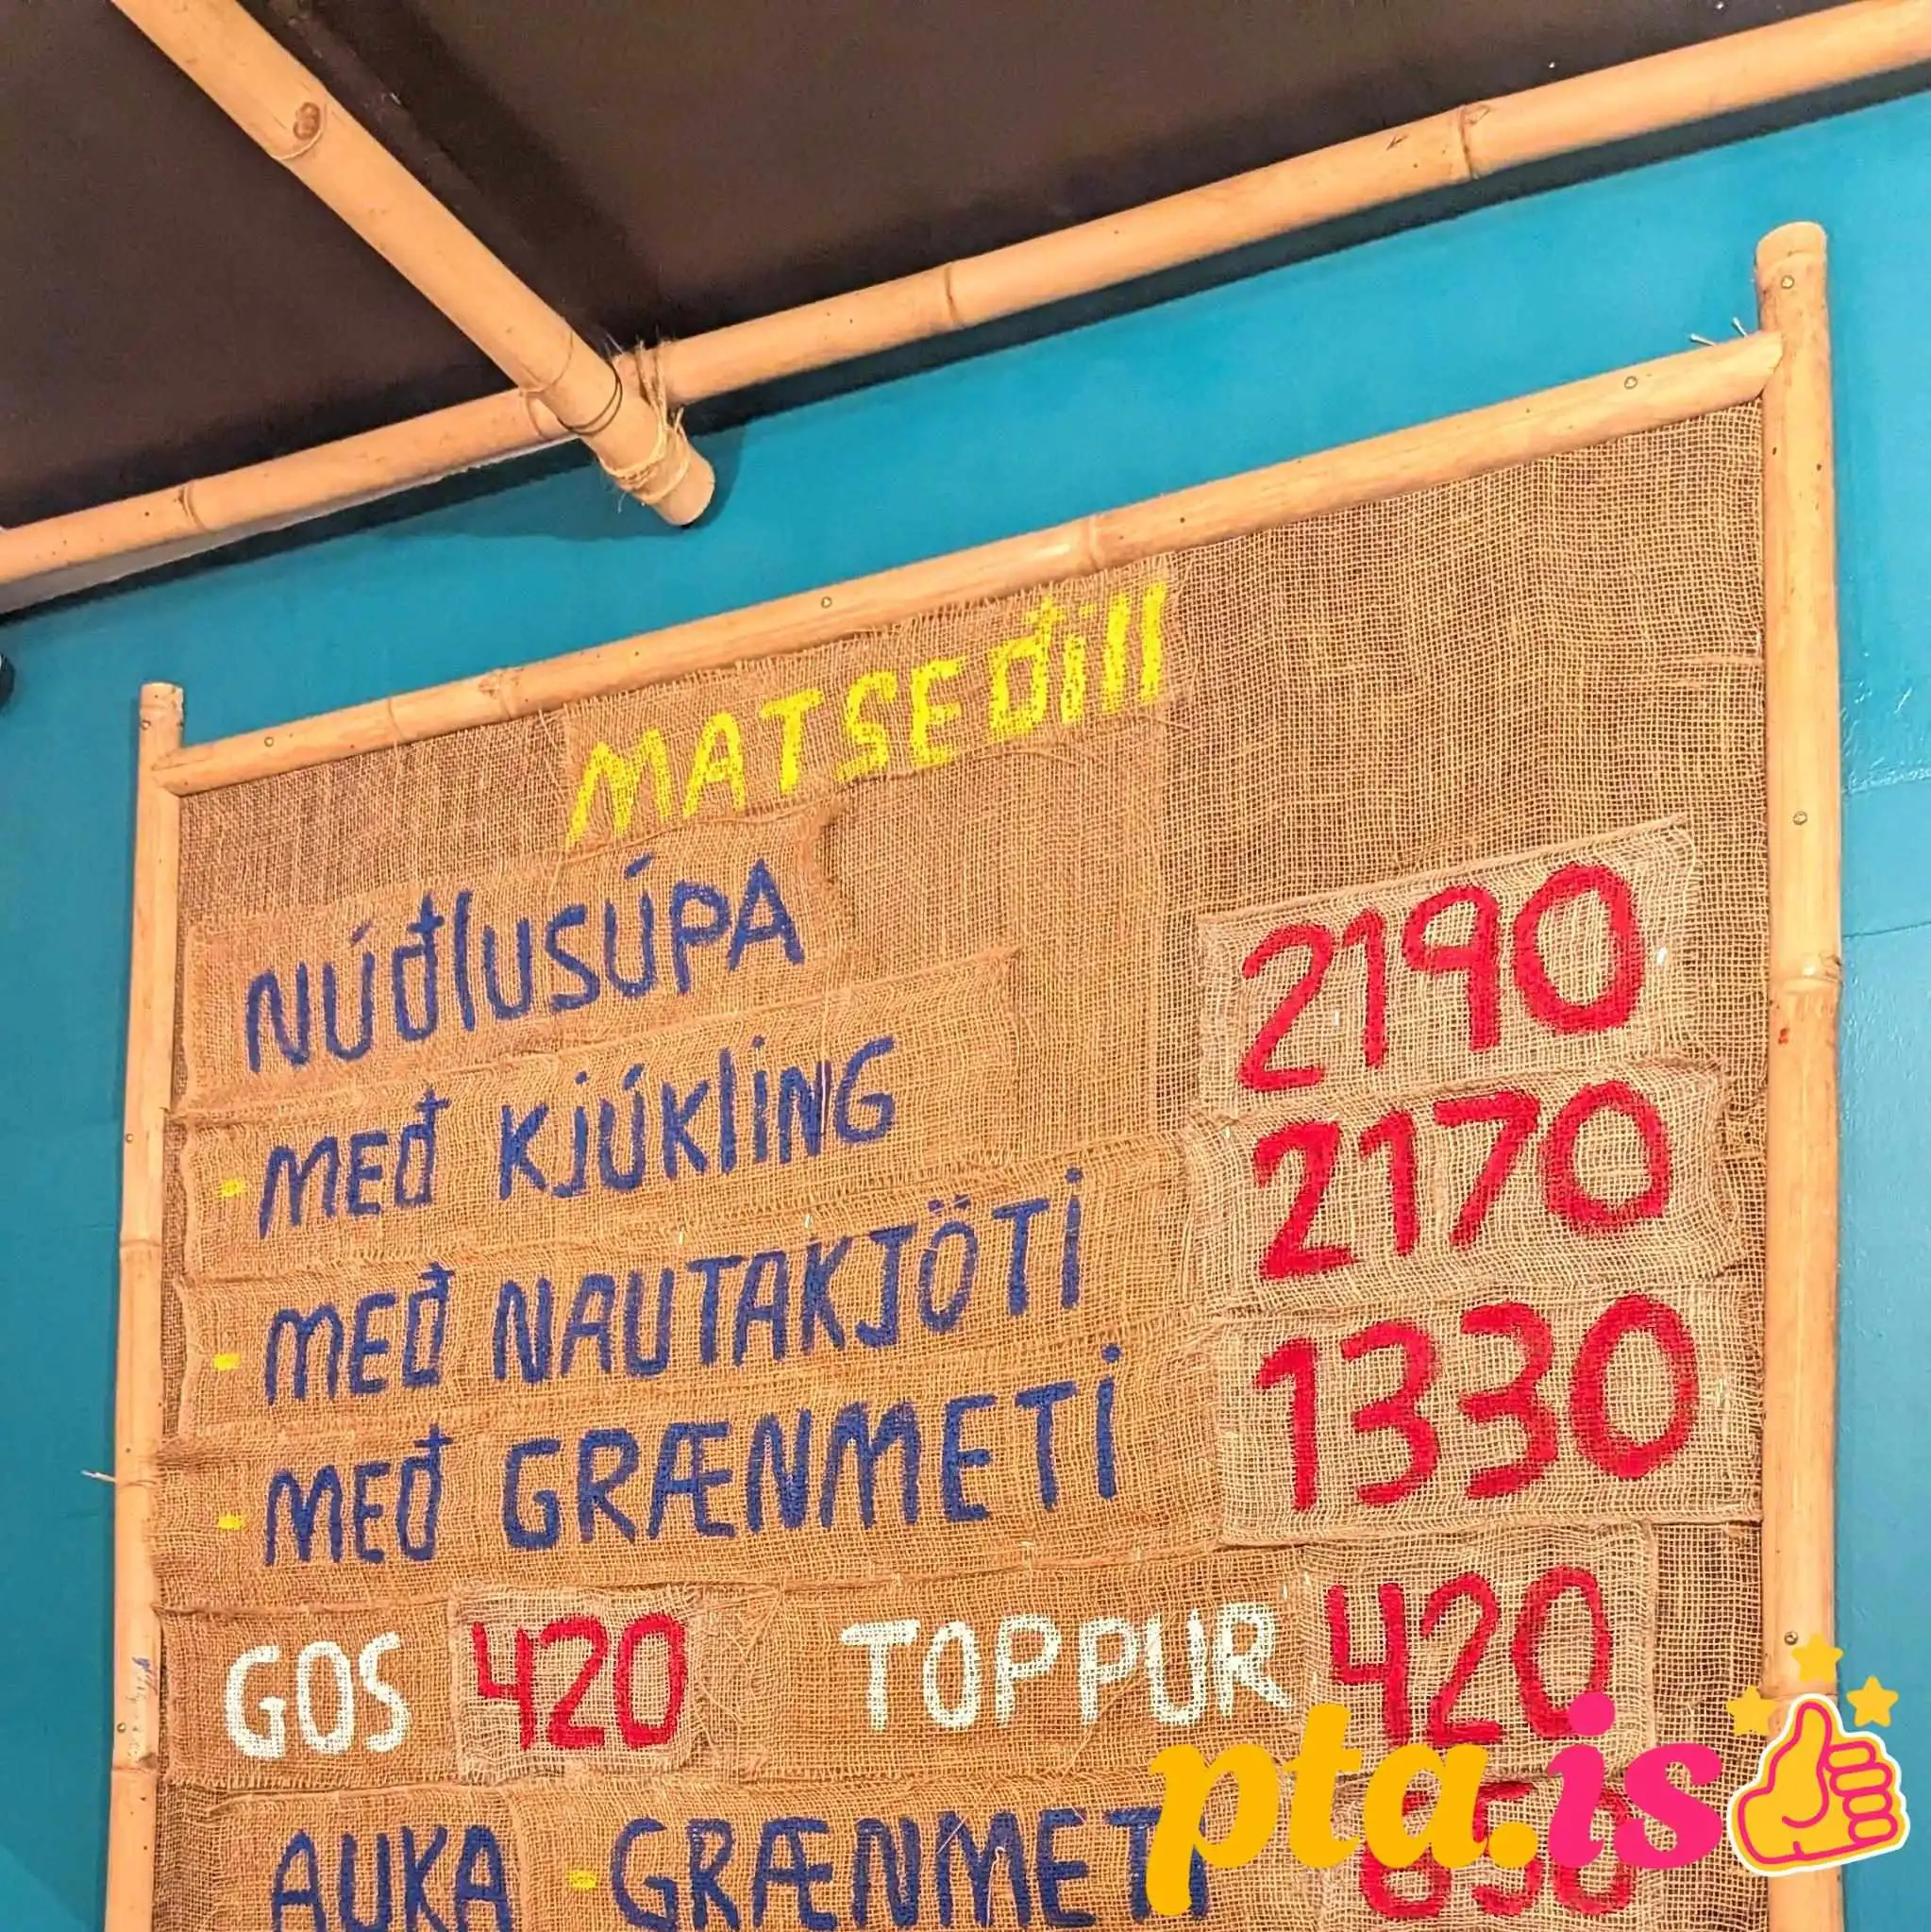 MATSEÐill
NÚÐlUSÚPA
- MEÐ KJÚKliNG 2190
- MEÐ NAUTAKJÖTi 2170
- MEÐ GRÆNMETi 1330
GOS 420 TOPPUR 420
AUKA - GRÆNMETi
pta.is